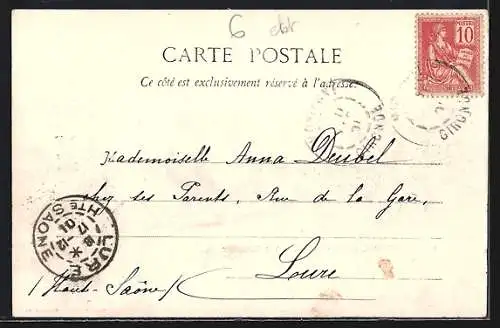 6 ebt
10
CARTE POSTALE
Ce côté est exclusivement réservé à l'adresse.
GIRONDE
GIRONDE
Mademoiselle Anna Deubel
chez ses Parents, Rue de la Gare,
Loure
(Haute-Saône)
LURE
17-12
01
HTE SAÔNE